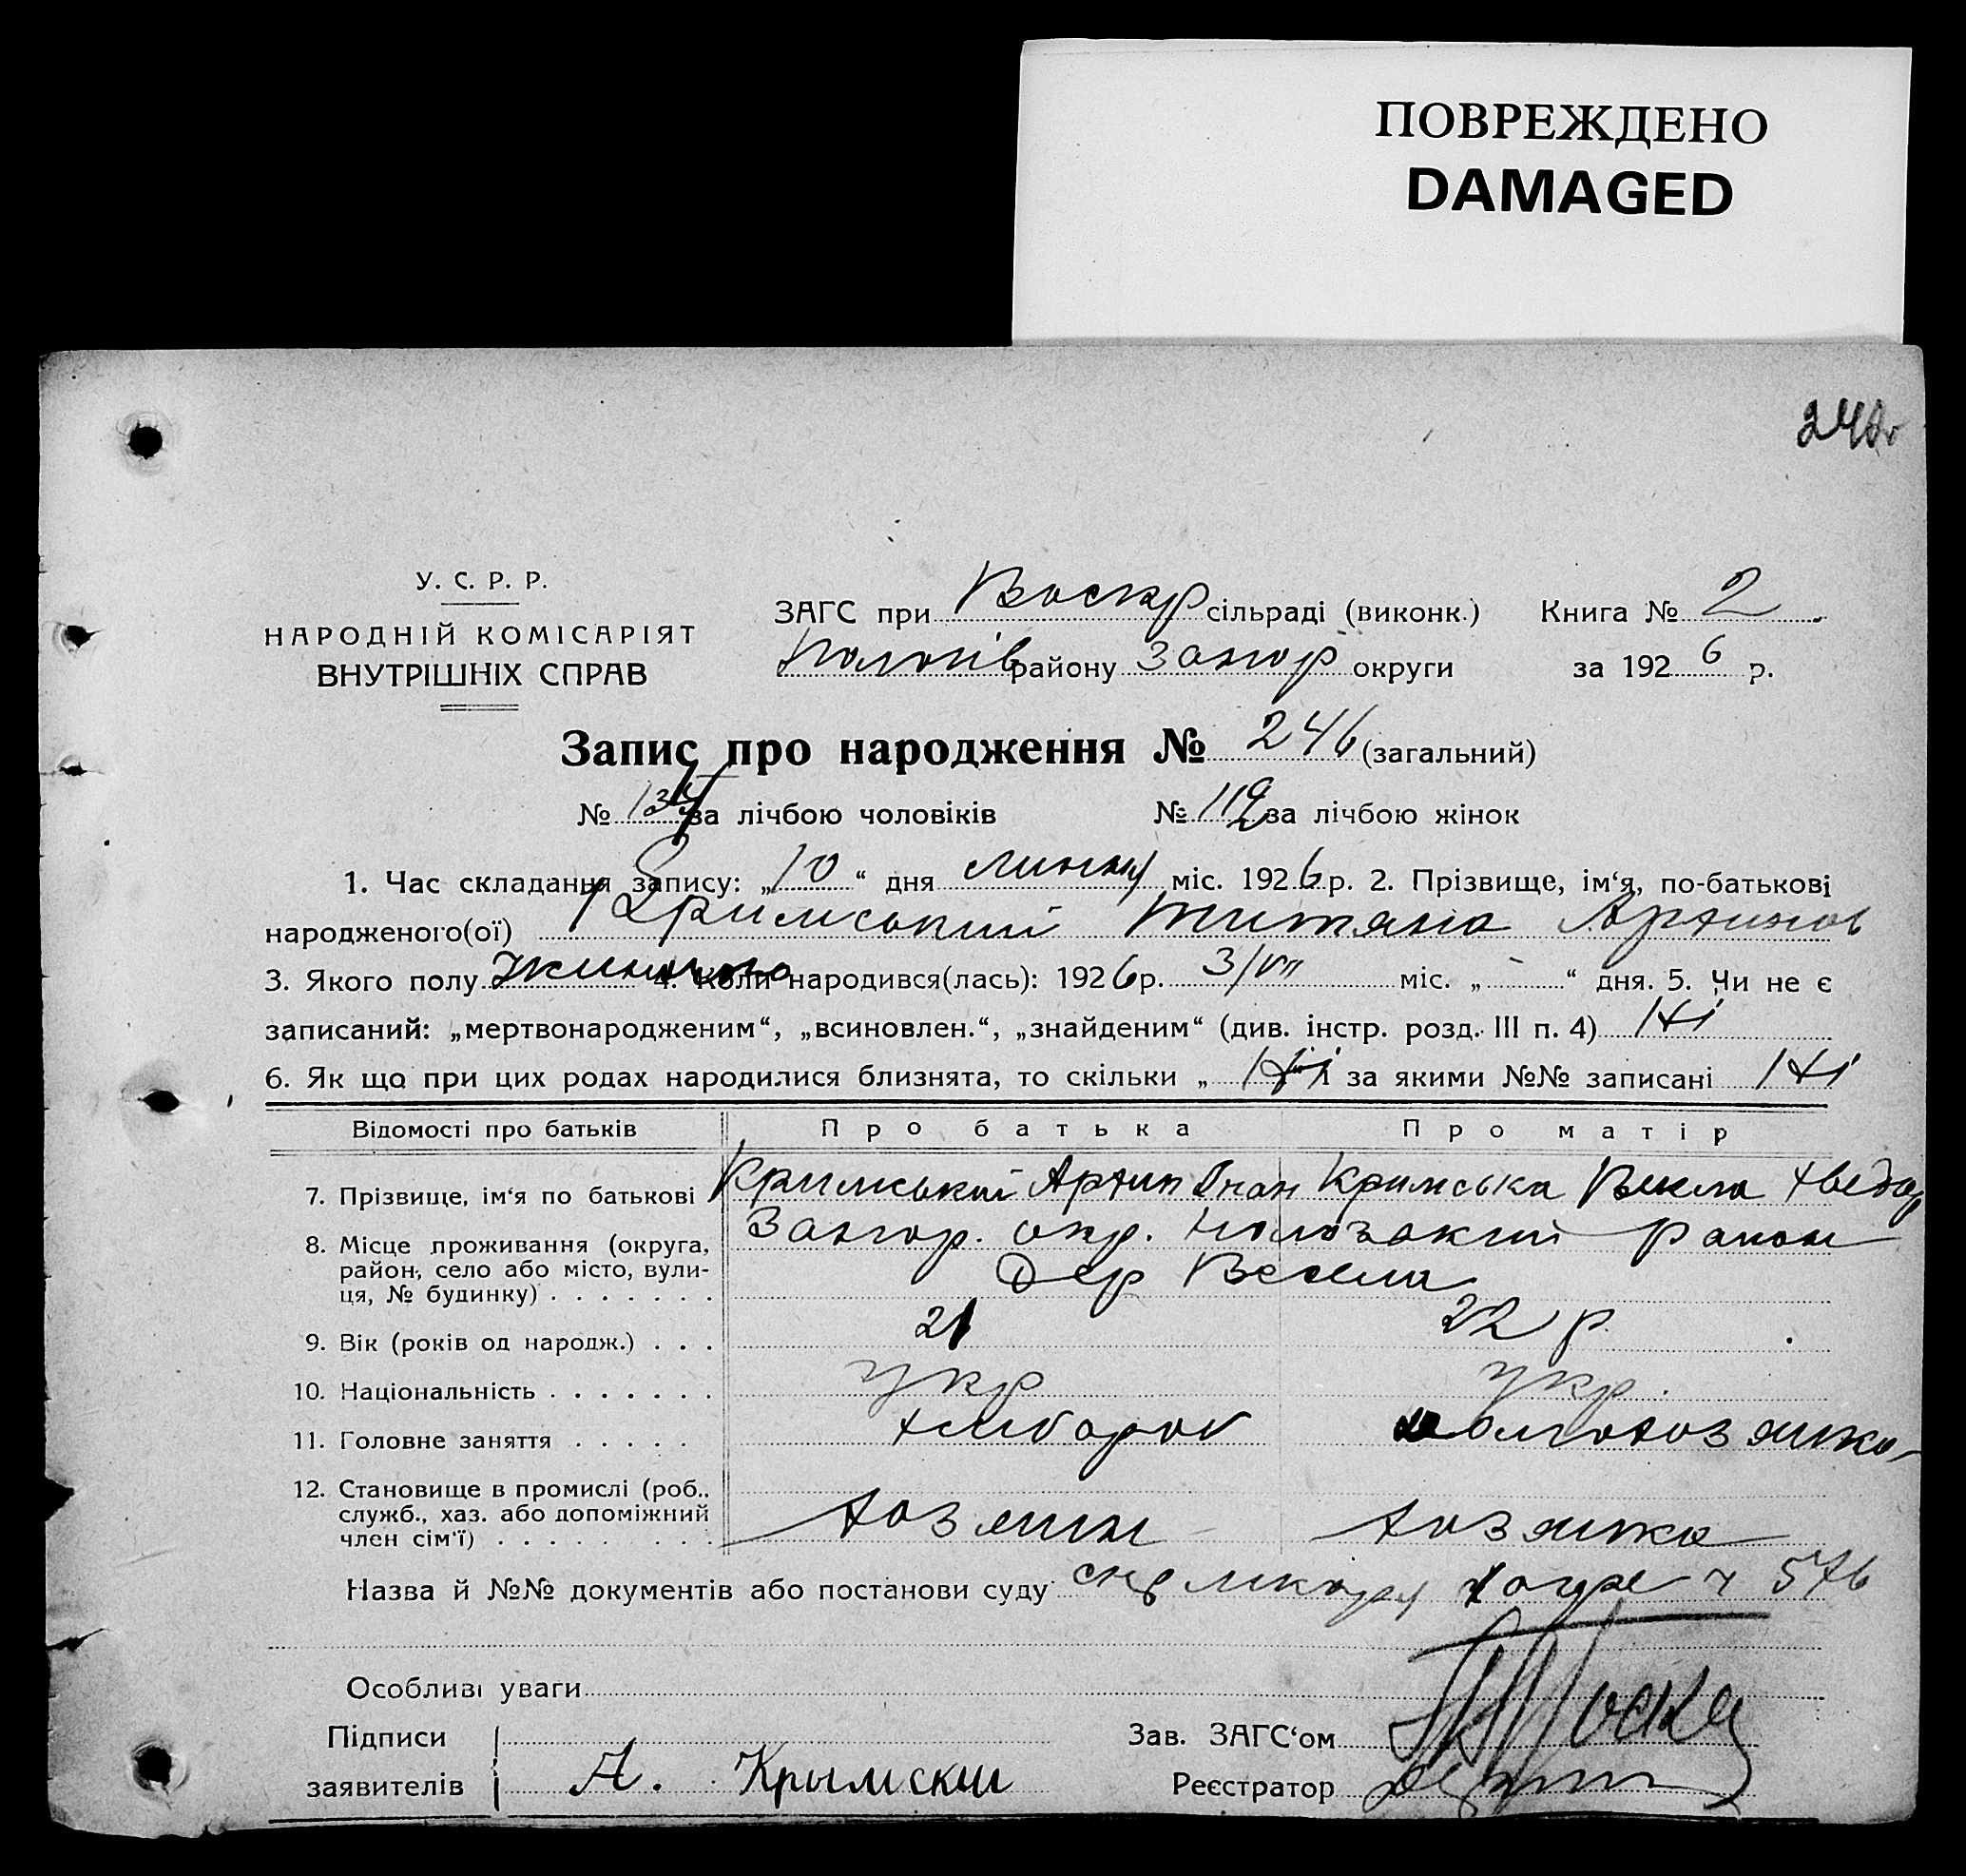 ПОВРЕЖДЕНО
DAMAGED
У. С. Р. Р.
НАРОДНІЙ КОМІСАРІЯТ
ВНУТРІШНІХ СПРАВ
ЗАГС при Воскр сільраді (виконк.) Книга № 2
району Запор округи за 1926 р.
Запис про народження № 246 (загальний)
№ за лічбою чоловіків № 112 за лічбою жінок
1. Час складання запису: „10“ дня липня міс. 1926 р. 2. Прізвище, ім‘я, по-батькові
народженого(ої) Кримський Титяна Архипов
3. Якого полу 4. Коли народився(лась): 1926 р. 3/VII міс. „ “ дня. 5. Чи не є
записаний: „мертвонародженим“, „всиновлен.“, „знайденим“ (див. інстр. розд. III п. 4) Ні
6. Як що при цих родах народилися близнята, то скільки „ Ні за якими №№ записані Ні
Відомості про батьків Про батька Про матір
7. Прізвище, ім‘я по батькові Кримський Архип Кримська Векла Хведор
8. Місце проживання (округа, район, село або місто, вулиця, № будинку) Запор. окр. район
Дер Весела
9. Вік (років од народж.) 21 22 р.
10. Національність укр укр.
11. Головне заняття хлібороб
12. Становище в промислі (роб., служб., хаз. або допоміжний член сім‘ї) хозяин хозяйка
Назва й №№ документів або постанови суду 576
Особливі уваги
Підписи заявителів А. Крымски
Зав. ЗАГС‘ом
Реєстратор